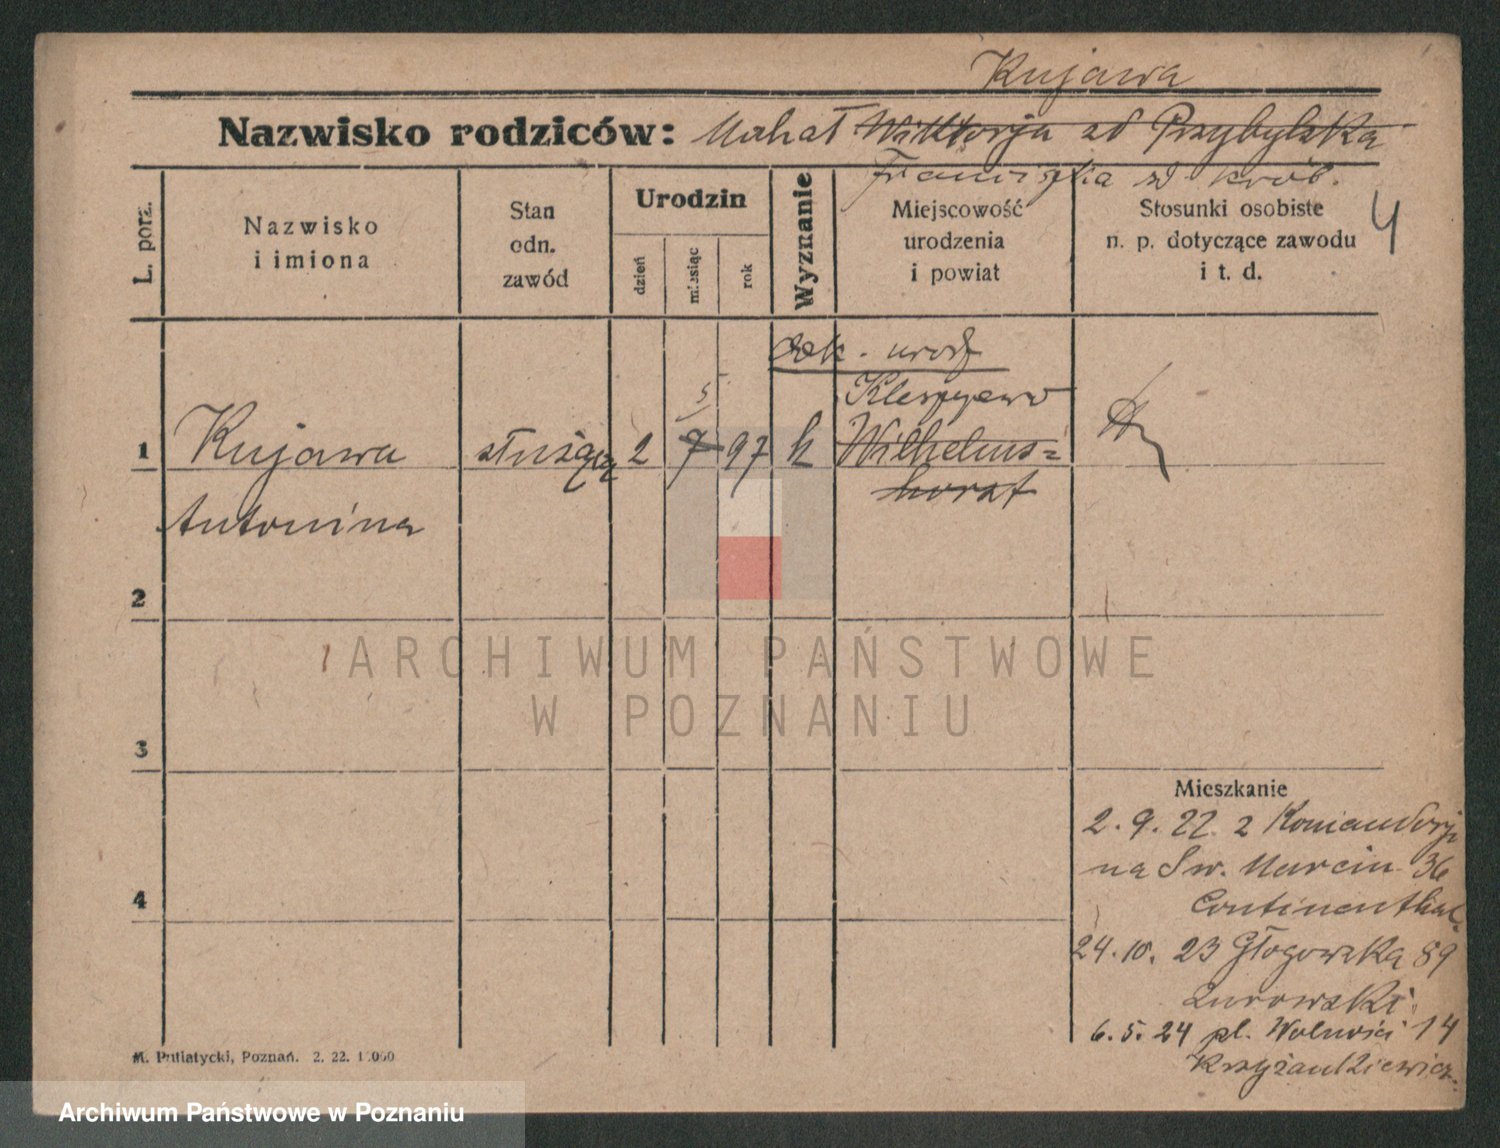 Kujawa
Nazwisko rodziców: Michał Wiktorja zd Przybylska
Franciszka zd Król.
L. porz.
Nazwisko
i imiona
Stan
odn.
zawód
Urodzin
dzień
miesiąc
rok
Wyznanie
Miejscowość
urodzenia
i powiat
Stosunki osobiste
n. p. dotyczące zawodu
i t. d.
4
dok. urodz
5 Kleszczewo
1 Kujawa służąca 2 7 97 k Wilhelms=
horst
Antonina
2
3
4
Mieszkanie
2. 9. 22 z Komandorji
na Św. Marcin 36
Continenthal
24. 10. 23 Głogowska 89
Żurowski
6. 5. 24 pl. Wolności 14
Krzyżankiewicz
M. Putiatycki, Poznań. 2. 22.
ARCHIWUM PAŃSTWOWE
W POZNANIU
Archiwum Państwowe w Poznaniu